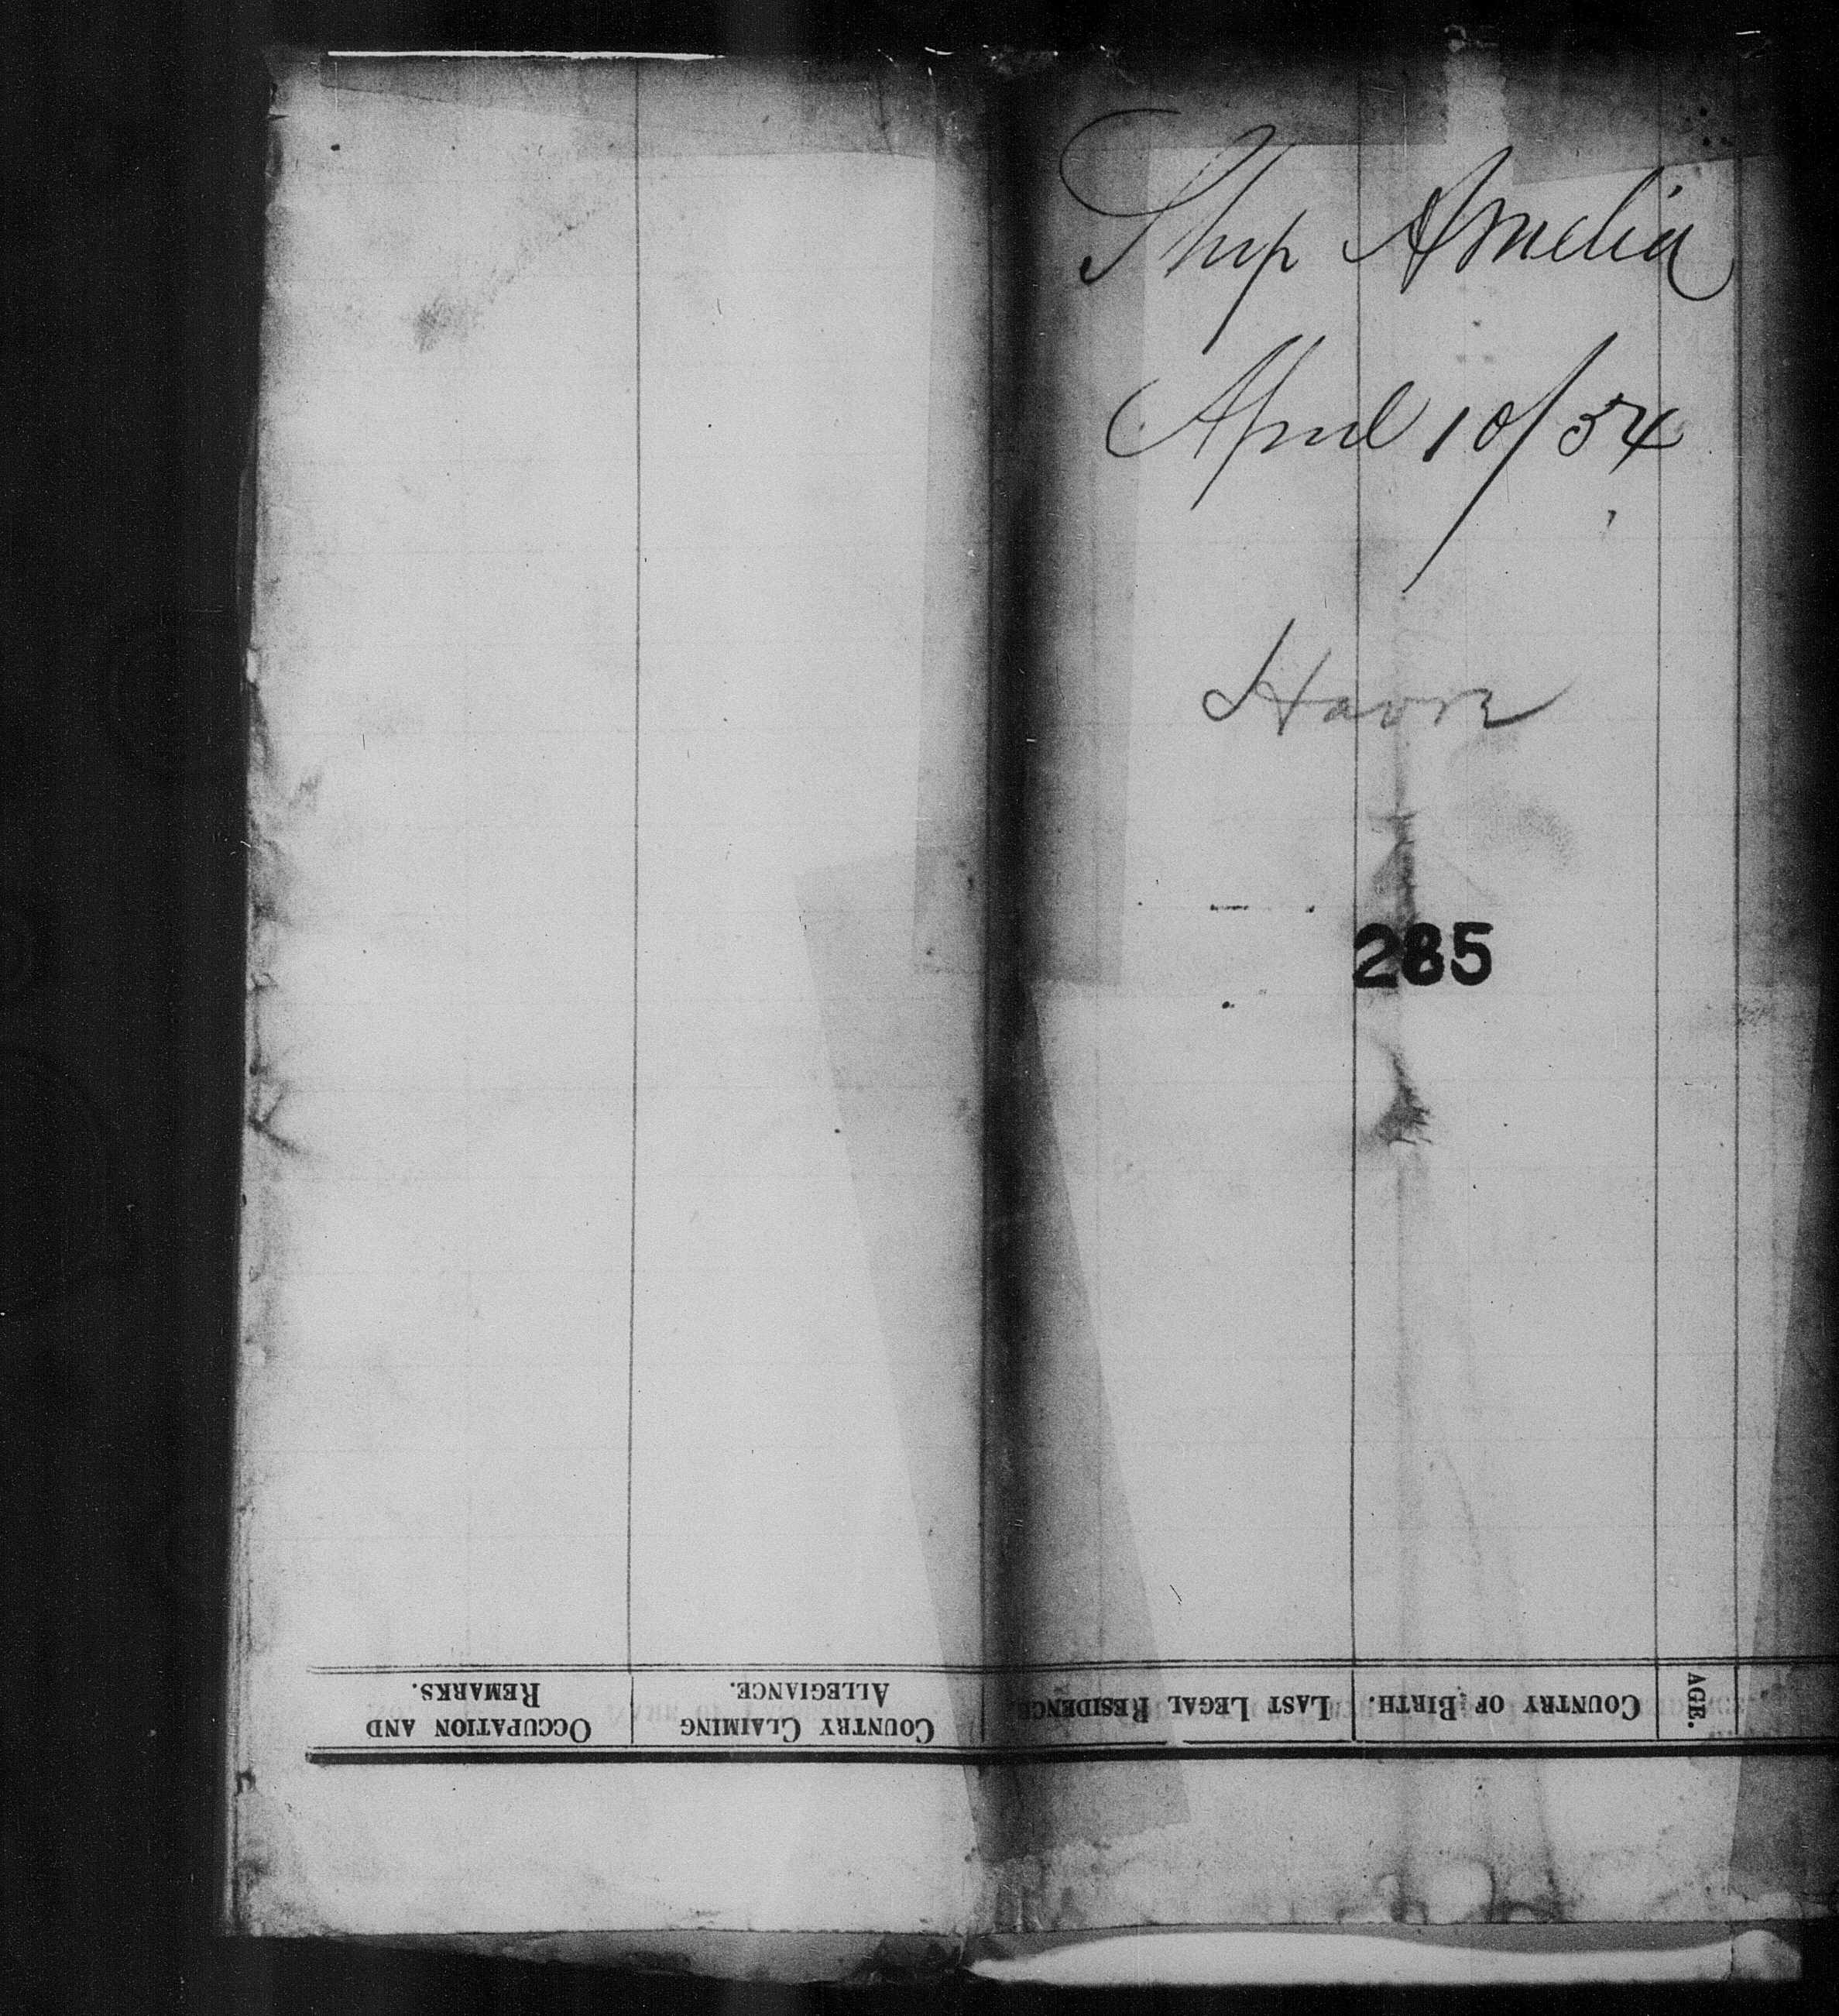 Ship Amelia
April 10/54
Havre
285
AGE.
COUNTRY OF BIRTH.
LAST LEGAL RESIDENCE.
COUNTRY CLAIMING
ALLEGIANCE.
OCCUPATION AND
REMARKS.